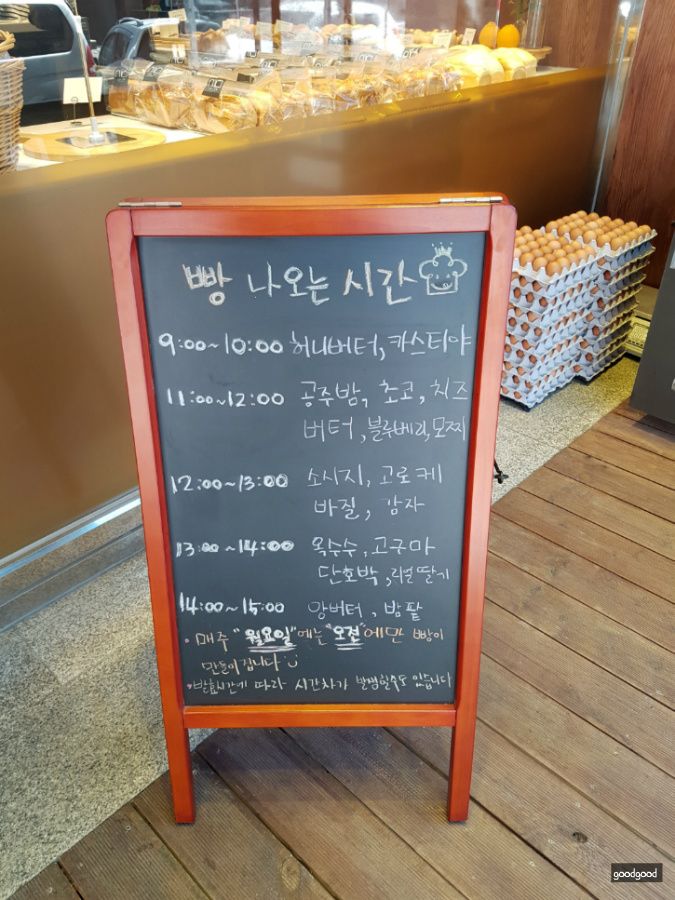 빵 나오는 시간
9:00~10:00 허니버터, 카스테야
11:00~12:00 공주밤, 초코, 치즈
버터, 블루베리, 모찌
12:00~13:00 소시지, 고로케
바질, 감자
13:00~14:00 옥수수, 고구마
단호박, 리얼딸기
14:00~15:00 앙버터, 밤팥
• 매주 "월요일"에는 "오전"에만 빵이
만들어집니다
• 발효시간에 따라 시간차가 발생할수도 있습니다
goodgood